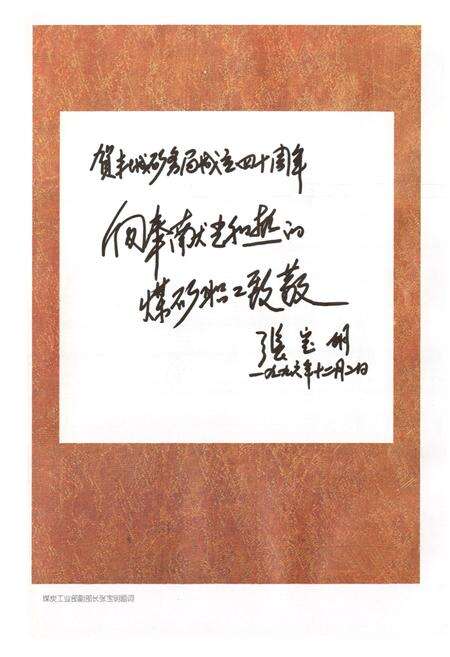 贺丰城矿务局成立四十周年
向奉献光和热的
煤矿职工致敬
张宝明
一九九六年十二月二日
煤炭工业部副部长张宝明题词